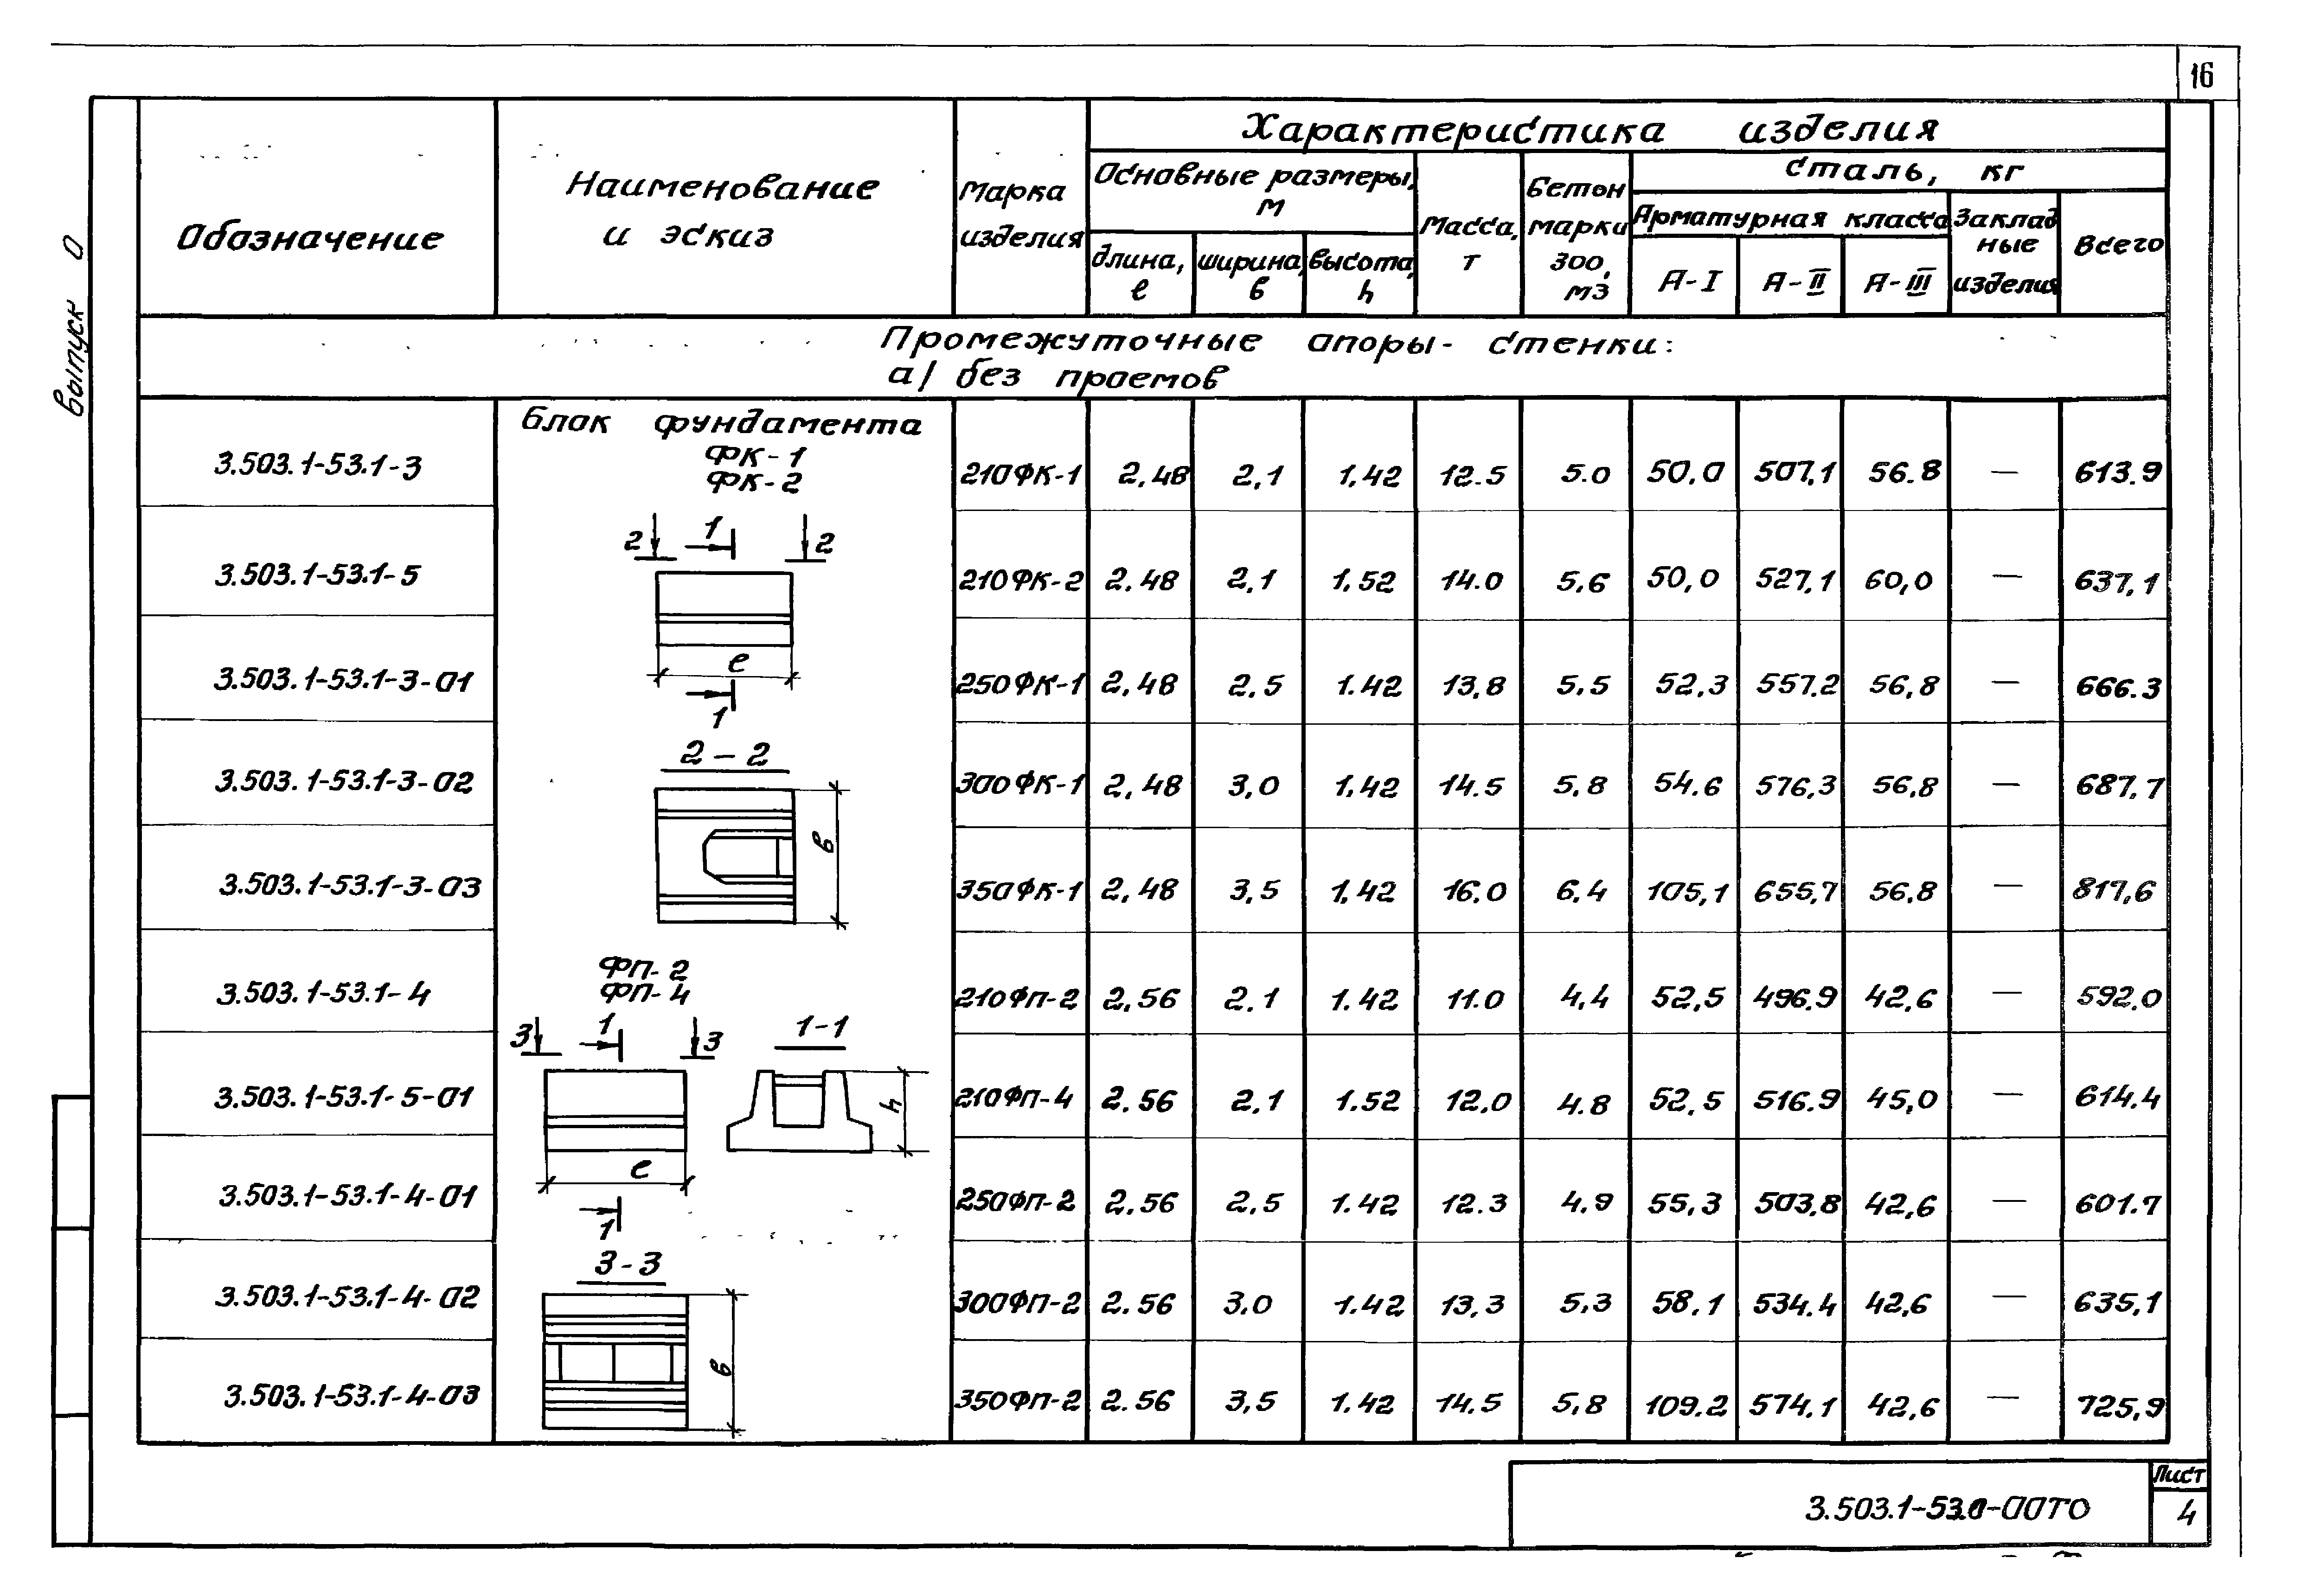 16
Выпуск 0
Обозначение
Наименование
и эскиз
Марка
изделия
Характеристика изделия
Основные размеры,
м
длина,
l
ширина,
в
высота,
h
Масса,
т
Бетон
марки
300,
м3
Сталь, кг
Арматурная класса
А-I
А-II
А-III
Заклад
ные
изделия
Всего
Промежуточные опоры- стенки:
а/ без проемов
Блок фундамента
ФК-1
ФК-2
2 1 2
l
1
2-2
в
ФП-2
ФП-4
3 1 3
1-1
h
l
1
3-3
в
3.503.1-53.1-3 210ФК-1 2,48 2,1 1,42 12.5 5.0 50,0 507,1 56.8 — 613.9
3.503.1-53.1-5 210ФК-2 2.48 2,1 1,52 14.0 5,6 50,0 527,1 60,0 — 637,1
3.503.1-53.1-3-01 250ФК-1 2,48 2.5 1.42 13,8 5,5 52,3 557.2 56,8 — 666.3
3.503.1-53.1-3-02 300ФК-1 2,48 3,0 1,42 14.5 5,8 54.6 576,3 56,8 — 687.7
3.503.1-53.1-3-03 350ФК-1 2,48 3,5 1,42 16,0 6,4 105,1 655,7 56,8 — 817,6
3.503.1-53.1-4 210ФП-2 2,56 2,1 1.42 11.0 4,4 52,5 496.9 42,6 — 592.0
3.503.1-53.1-5-01 210ФП-4 2.56 2,1 1.52 12,0 4.8 52,5 516.9 45,0 — 614.4
3.503.1-53.1-4-01 250ФП-2 2,56 2,5 1.42 12.3 4,9 55,3 503,8 42,6 — 601.7
3.503.1-53.1-4-02 300ФП-2 2.56 3,0 1.42 13,3 5,3 58,1 534.4 42,6 — 635,1
3.503.1-53.1-4-03 350ФП-2 2.56 3,5 1.42 14,5 5,8 109.2 574.1 42,6 — 725,9
3.503.1-53.0-00ТО
Лист
4